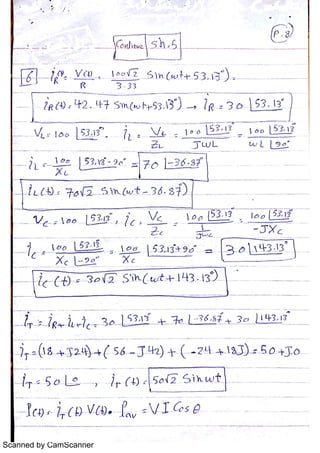 P.8
Continue Sh.5
6 i_R = V(t)/R = 100√2/3.33 Sin(ωt+53.13°).
i_R(t) = 42.47 Sin(ωt+53.13°) → i_R = 30 ∠53.13°
V_L = 100 ∠53.13°. i_L = V_L/Z_L = 100 ∠53.13°/JωL = 100 ∠53.13°/ωL ∠90°
i_L = 100/X_L ∠53.13°-90° = 70 ∠-36.87°
i_L(t) = 70√2 Sin(ωt-36.87)
V_C = 100 ∠53.13°, i_C = V_C/Z_C = 100 ∠53.13°/(1/JωC) = 100 ∠53.13°/-JX_C
i_C = 100 ∠53.13/X_C ∠-90° = 100/X_C ∠53.13+90° = 30 ∠143.13°
i_C(t) = 30√2 Sin(ωt+143.13°)
i_T = i_R + i_L + i_C = 30 ∠53.13° + 70 ∠-36.87° + 30 ∠143.13°
i_T = (18+J24)+(56-J42)+(-24+18J) = 50+J0
i_T = 50 ∠0, i_T(t) = 50√2 Sin ωt
P(t) = i_T(t) V(t). P_av = V I Cos θ
Scanned by CamScanner